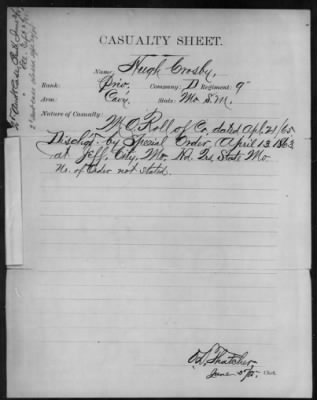 CASUALTY SHEET.
Name: Hugh Crosby,
Rank: Priv. Company: D Regiment: 9"
Arm: Cav. State: Mo. S.M.
Nature of Casualty:
M.O. Roll of Co. dated Apl. 21/65
Dischgd. by Special Order, April 13 1863
at Jeff. City, Mo. Hd. Qrs. State Mo
No. of Order not stated.
O.L. Thatcher
June 5"/85. Clerk.